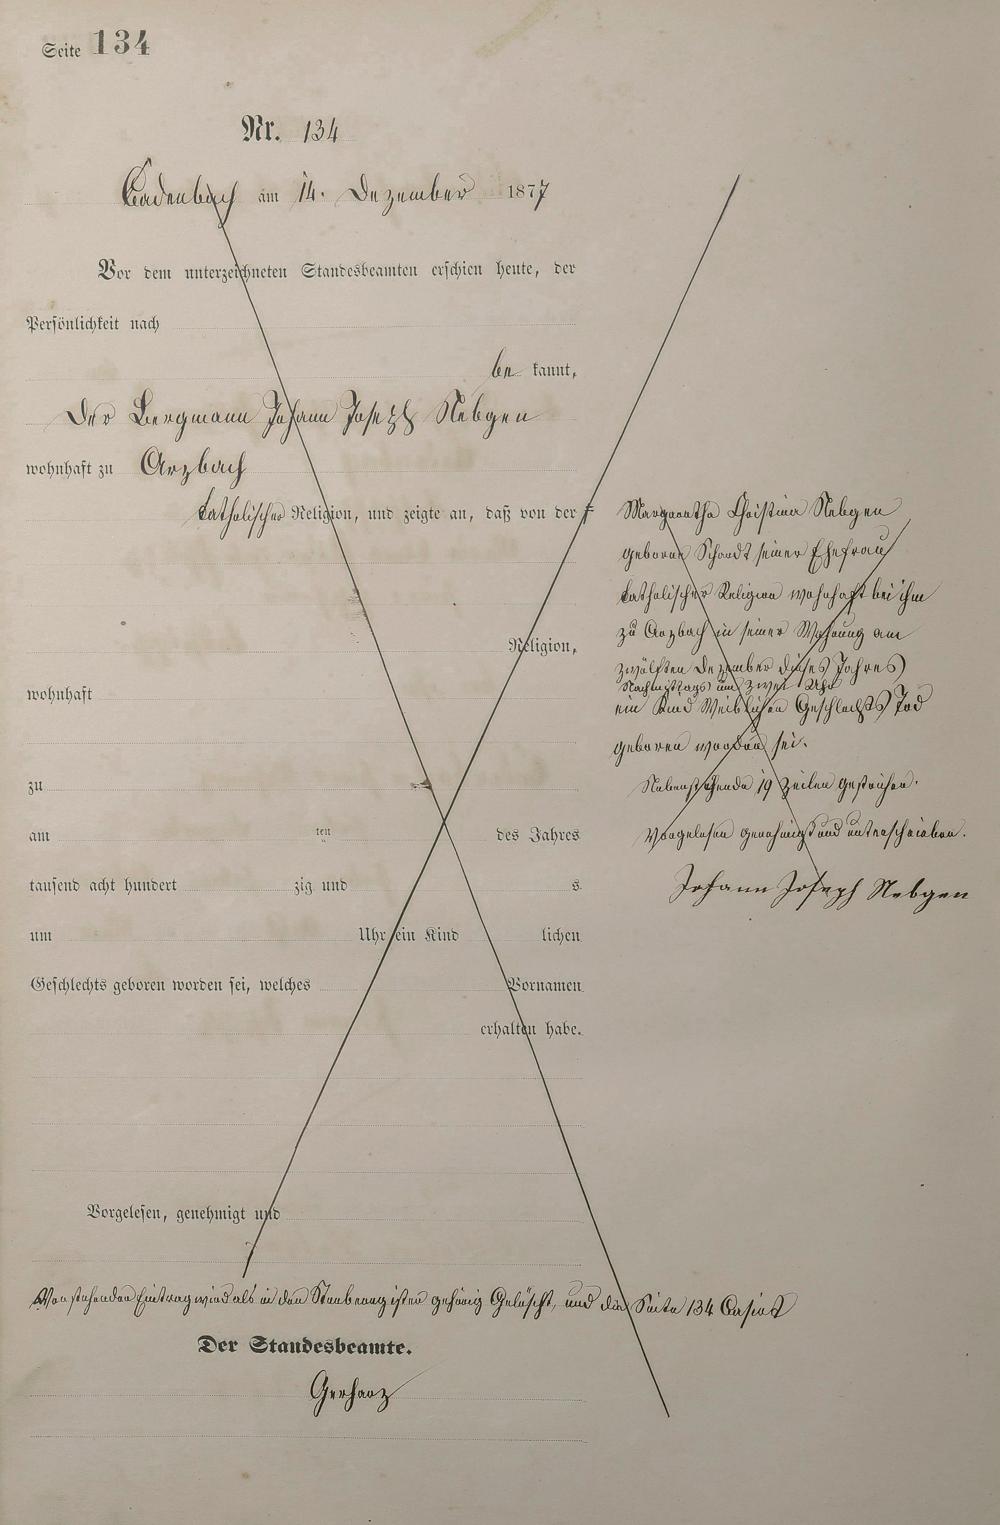 Seite 134
Nr. 134
Cadenbach am 14. Dezember 1877
Vor dem unterzeichneten Standesbeamten erschien heute, der
Persönlichkeit nach
be kannt,
Der Bergmann Johann Joseph Nebgen
wohnhaft zu Arzbach
katholischer Religion, und zeigte an, daß von der
Religion,
wohnhaft
zu
am ten des Jahres
tausend acht hundert zig und s
um Uhr ein Kind lichen
Geschlechts geboren worden sei, welches Vornamen
erhalten habe.
Vorgelesen, genehmigt und
Margaretha Christina Nebgen
geborne Schardt seiner Ehefrau
katholischer Religion wohnhaft bei ihm
zu Arzbach in seiner Wohnung am
zwölften Dezember dieses Jahres
Nachmittags um zwei Uhr
ein Kind Weiblichen Geschlechts Tod
geboren worden sei.
Nebenstehende 19 Zeilen gestrichen.
Vorgelesen genehmigt und unterschrieben.
Johann Joseph Nebgen
Vorstehender Eintrag wird als in den Sterberegister gehörig Gelöscht, und die Seite 134 Casirt
Der Standesbeamte.
Gerharz